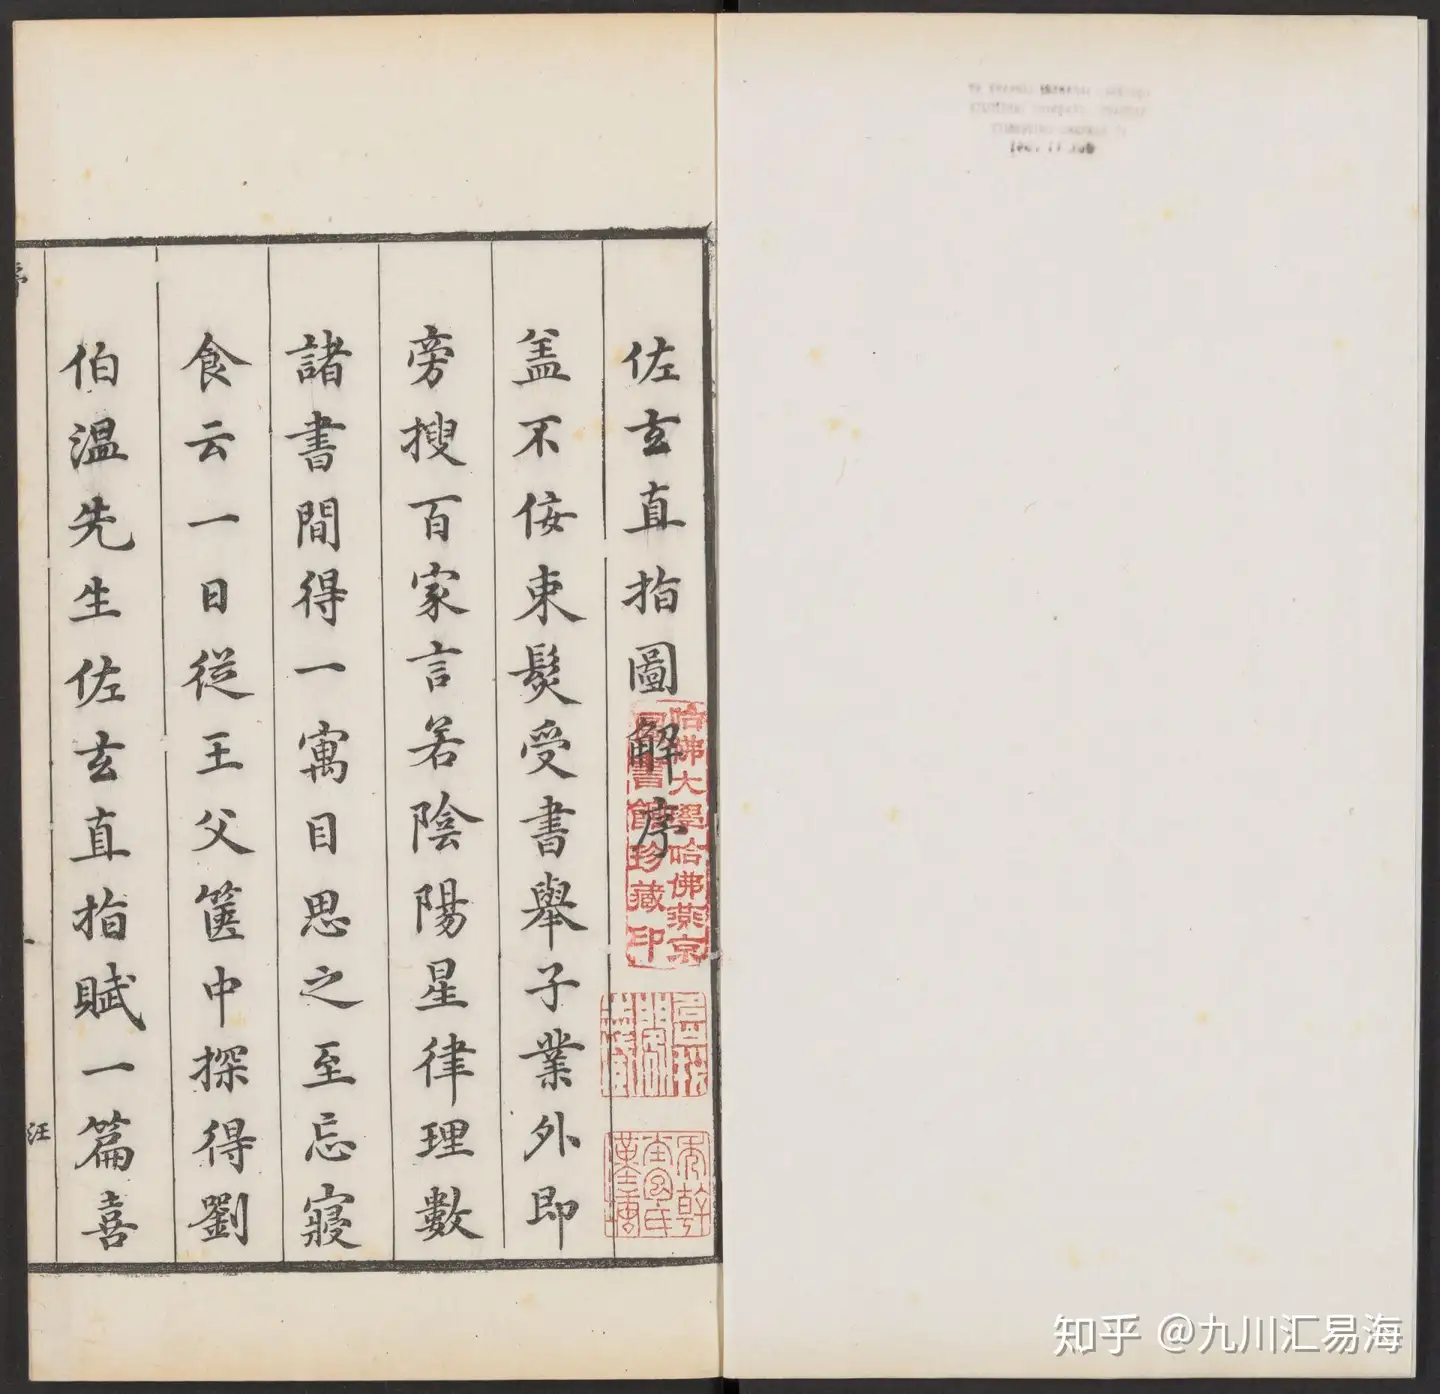 佐玄直指圖解序
盖不佞束髮受書舉子業外即
旁搜百家言若陰陽星律理數
諸書間得一寓目思之至忘寢
食云一日從王父篋中探得劉
伯溫先生佐玄直指賦一篇喜
序
汪
哈佛大學哈佛燕京
圖書館珍藏印
知乎 @九川汇易海